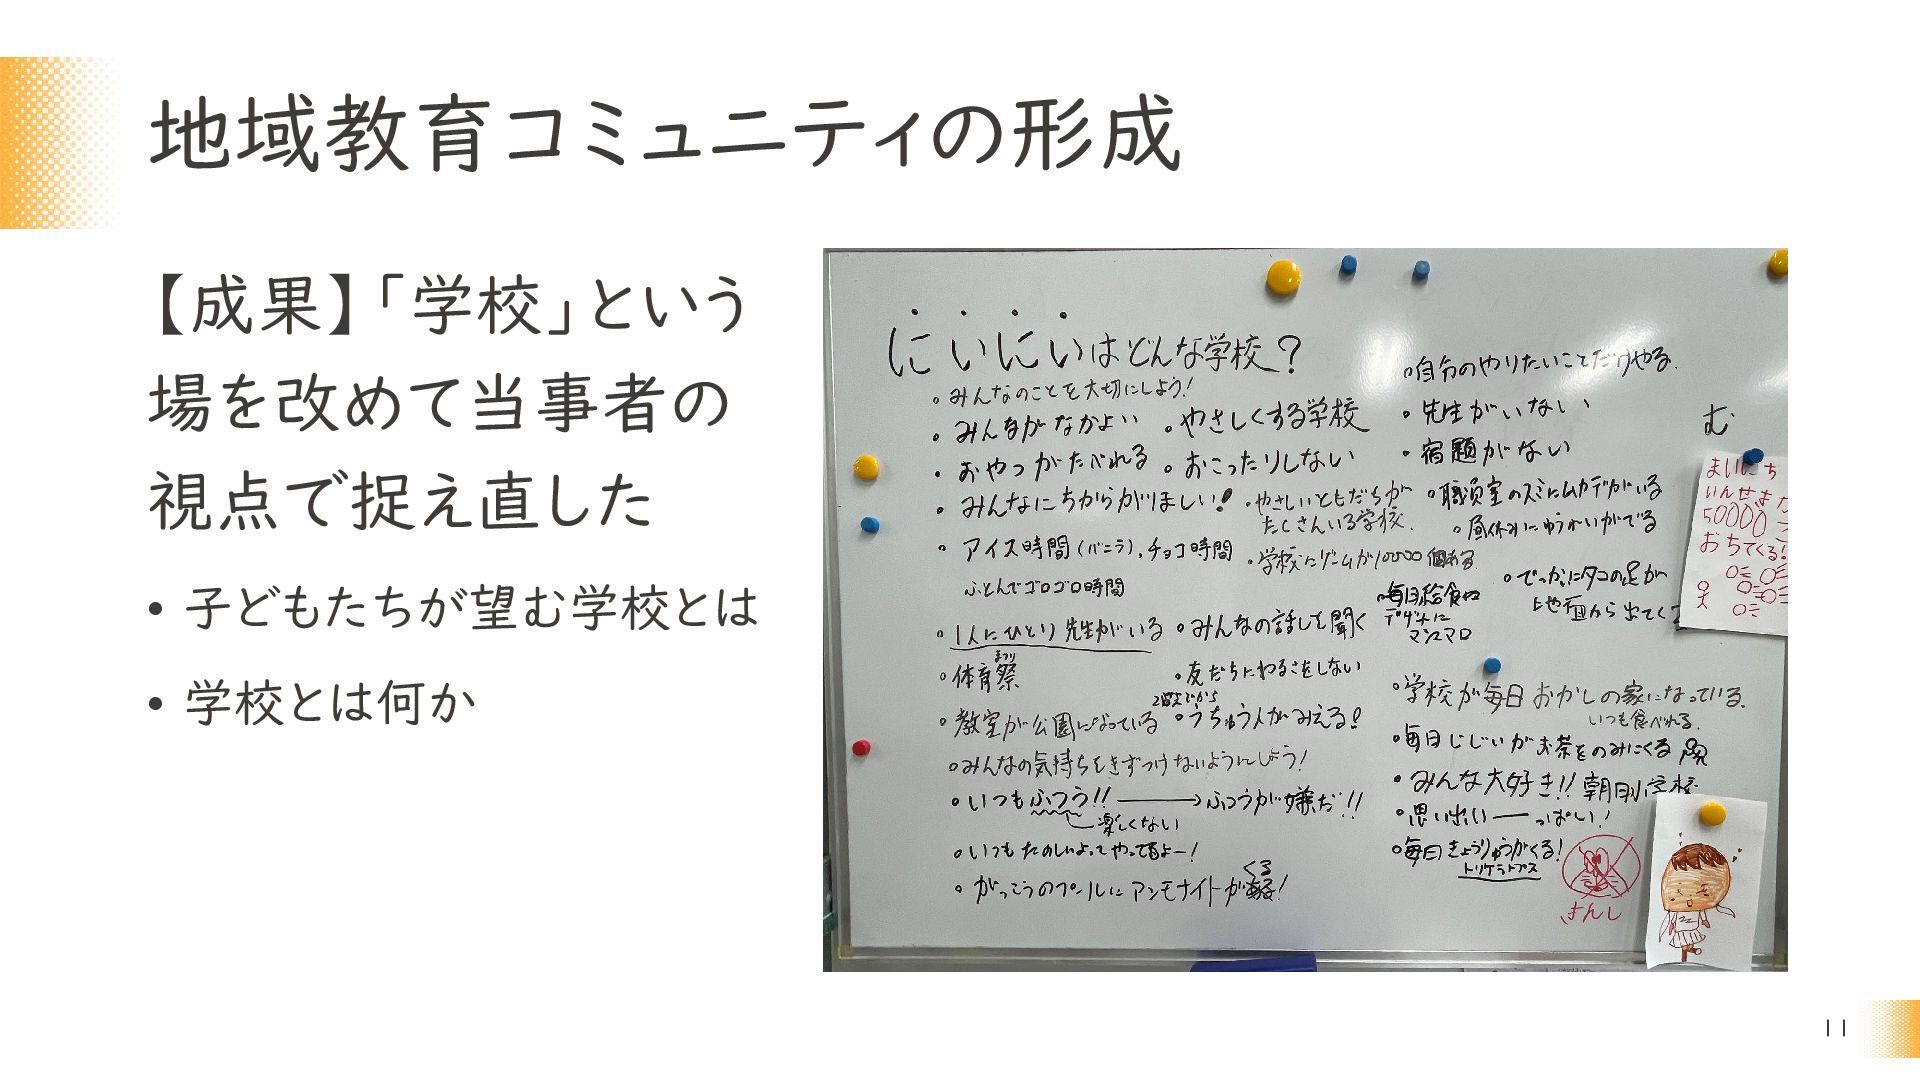 地域教育コミュニティの形成
【成果】「学校」という
場を改めて当事者の
視点で捉え直した
• 子どもたちが望む学校とは
• 学校とは何か
にいにいはどんな学校?
・みんなのことを大切にしよう!
・みんながなかよい ・やさしくする学校
・おやつがたべれる ・おこったりしない
・みんなにちからがほしい! ・やさしいともだちが
たくさんいる学校.
・アイス時間(バニラ),チョコ時間 ・学校にゲームが10000個ある.
ふとんでゴロゴロ時間
・1人にひとり先生がいる ・みんなの話しを聞く
まつり
・体育祭 ・友だちにわるさをしない
・教室が公園になっている ・うちゅう人がみえる!
・みんなの気持ちをきずつけないようにしよう!
・いつもふつう!! → ふつうが嫌だ!!
楽しくない
・いつもたのしいよってやってるよー!
・がっこうのプールにアンモナイトがくる!
・自分のやりたいことだけやる.
・先生がいない
・宿題がない
・職員室のスミにムカデがいる
・昼休みにゆうれいがでる
・でっかいタコの足が
地面から出てくる
・毎日給食の
デザートに
マシュマロ
・学校が毎日おかしの家になっている.
いつも食べれる.
・毎日じじいがお茶をのみにくる
・みんな大好き!!朝日小学校
・思い出いーっぱい!
・毎日きょうりゅうがくる!
トリケラトプス
きんし
む
まいにち
いんせきが
50000こ
おちてくる!
11